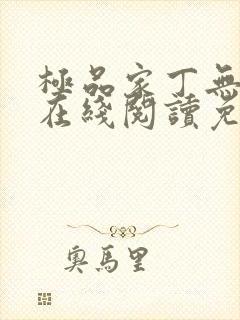 極品家丁無
在綫閱讀免
奧馬里